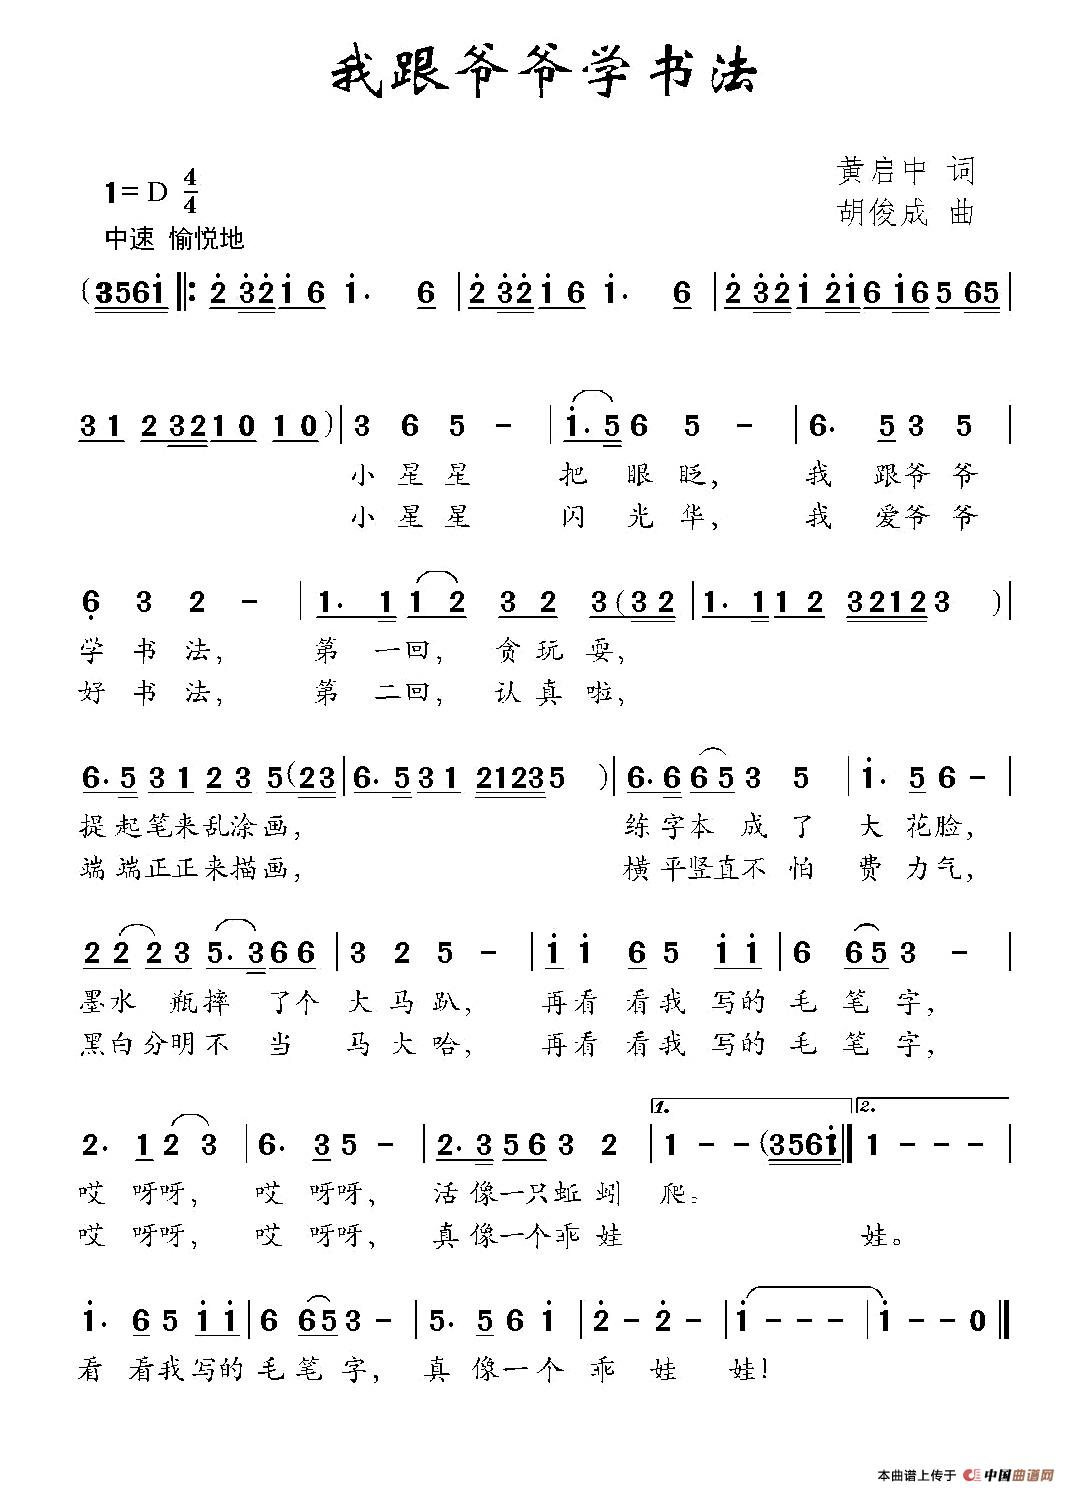 我跟爷爷学书法
黄启中 词
1=D 4/4
胡俊成 曲
中速 愉悦地
(3561̇ ‖: 2̇ 3̇2̇1̇ 6 1̇. 6 | 2̇ 3̇2̇1̇ 6 1̇. 6 | 2̇ 3̇2̇1̇ 2̇1̇6 1̇65 65 |
31 23210 10) | 3 6 5 - | 1̇.5 6 5 - | 6. 5 3 5 |
小 星 星 把 眼 眨， 我 跟爷 爷
小 星 星 闪 光 华， 我 爱爷 爷
6̣ 3 2 - | 1. 1 1 2 3 2 3(32 | 1. 1 1 2 32123 ) |
学 书 法， 第 一回， 贪玩 耍，
好 书 法， 第 二回， 认真 啦，
6.5 31 23 5(23 | 6.531 21235 ) | 6.6 653 5 | 1̇. 5 6 - |
提起笔来乱涂画， 练字本 成 了 大 花脸，
端端正正来描画， 横平竖直不 怕 费 力气，
22 23 5.366 | 3 2 5 - | 1̇ 1̇ 6 5 1̇ 1̇ | 6 65 3 - |
墨水 瓶摔 了个 大马趴， 再看 看我 写的 毛 笔 字，
黑白分明不 当 马大哈， 再看 看我 写的 毛 笔 字，
2. 1 2 3 | 6. 3 5 - | 2.3 563 2 | 1. 1 - - (3561̇ :‖ 2. 1 - - - |
哎 呀呀， 哎 呀呀， 活像一只蚯 蚓 爬。
哎 呀呀， 哎 呀呀， 真像一个乖 娃 娃。
1̇. 6 5 1̇ 1̇ | 6 65 3 - | 5. 5 6 1̇ | 2̇ - 2̇ - | 1̇ - - - | 1̇ - - 0 ‖
看 看我写的 毛 笔 字， 真 像一个 乖 娃 娃！
本曲谱上传于 中国曲谱网